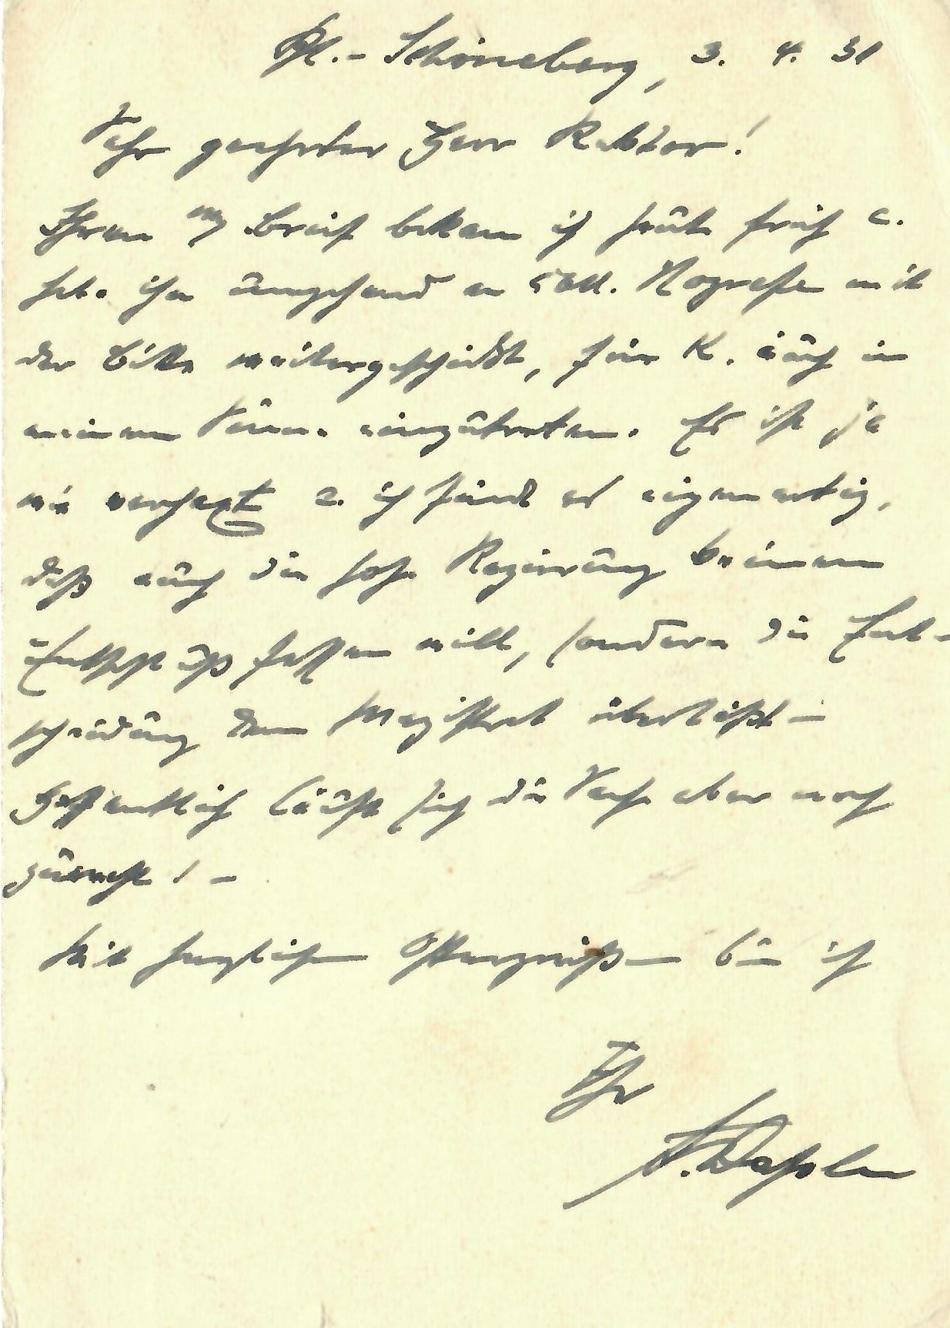 Bl.-Schöneberg, 3. 4. 31
Sehr geehrter Herr Rektor!
Ihren Brief bekam ich heute früh u.
habe ihn umgehend an Koll. mit
der Bitte weitergeschickt, für K. auch in
meinem Sinne einzutreten. Es ist ja
wie verhext u. ich finde es eigenartig,
daß auch die hohe Regierung keinen
Entschluß fassen will, sondern die Ent-
scheidung dem Magistrat überläßt –
Hoffentlich läuft sich die Sache aber noch
zurecht! –
Mit herzlichen Ostergrüßen bin ich
Ihr